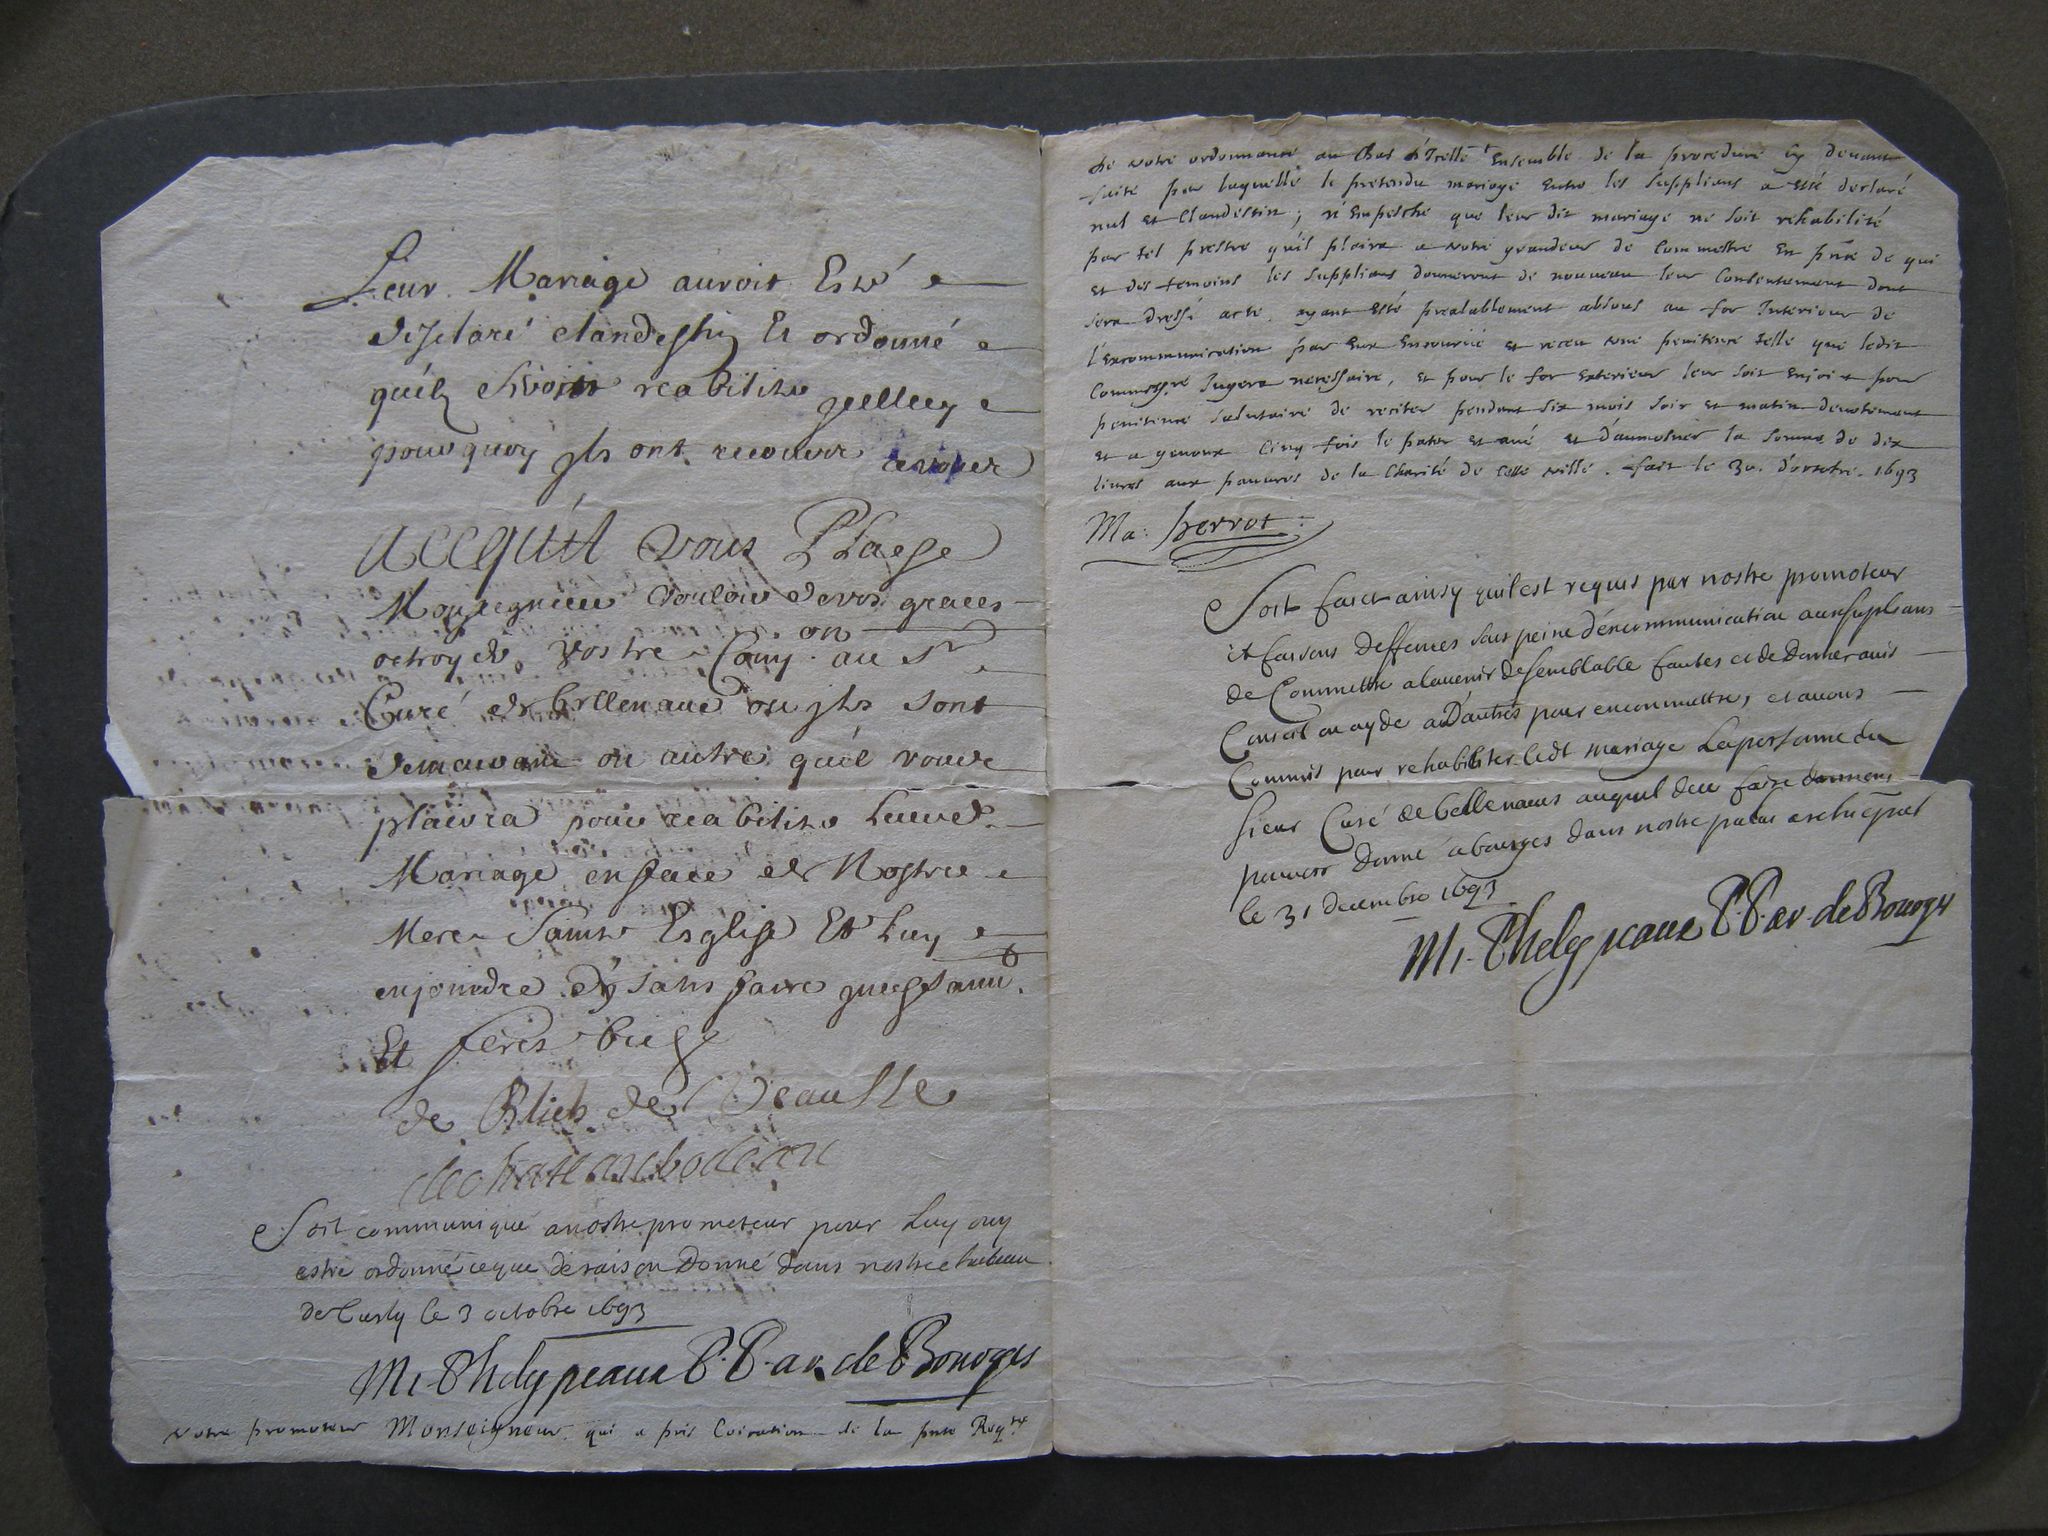 Leur Mariage auroit Esté
desclaré clandestin Et ordonné
quilz feroint reabiliter jcelluy
pourquoy jls ont recours a vous
Ace quil vous Plaise
Monseigneur vouloir de vos graces
octroyer vostre Comm.on au Sr
Curé de bellenave ou jls sont
demeurant ou autre quil vous
plairra pour reabiliter leurd.
Mariage en face de Nostre
Mere Sainte Esglise Et Luy
enjoindre dy sans faire
Et feres bien
de Blich de Veausse
Soit communiqué a nostre promoteur pour Luy ouy
estre ordonné ce que de raison Donné dans nostre chateau
de Turly le 3 octobre 1693
M. Phelypeaux P. P. ar. de Bourges
Notre promoteur Monseigneur qui a pris Coication de la pnte Reqte
de votre ordonnance au bas d'Icelle Ensemble de la procedure cy devant
faite par laquelle le pretendu mariage entre les supplians a esté declaré
nul et Clandestin, n'Empesche que leur dit mariage ne soit rehabilité
par tel prestre qu'il plaira a votre grandeur de Commettre En pnce de qui
et des temoins les supplians donneront de nouveau leur Consentement dont
sera dressé acte, ayant esté prealablement absous au for Interieur de
l'Excommunication par Eux Encouruë et receu une penitence telle que ledit
Commissre Jugera necessaire, et pour le for exterieur leur soit enjoint pour
penitence salutaire de reciter pendant six mois soir et matin devotement
et a genoux Cinq fois le pater et avé et d'aumosner la somme de dix
livres aux pauvres de la Charité de cette ville. fait le 30. d'octobre. 1693
Ma: perrot
Soit faict ainsy quil est requis par nostre promoteur
et faisons deffences sous peine d'excommunication aux suplians
de Commettre a lavenir de semblable fautes et de Donner avis
Conseil ou ayde a D'autres pour en commettre, et avons
Commis pour rehabiliter ledt mariage La personne du
sieur Curé de bellenaves auquel de ce faire donnons
pouvoir Donné a bourges dans nostre palais archiepal
le 31 decembre 1693
M. Phelypeaux P. P. ar. de Bourges